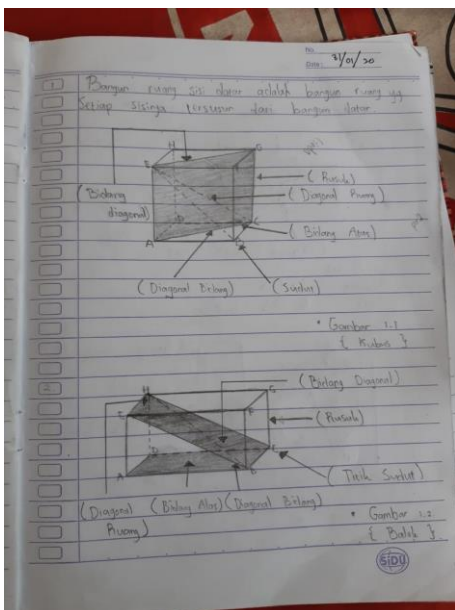 No.
Date: 31/01/20
1 Bangun ruang sisi datar adalah bangun ruang yg
Setiap sisinya tersusun dari bangun datar
H G
E
(Bidang
diagonal)
(Rusuk)
(Diagonal Ruang)
D C
(Bidang Alas)
A B
(Diagonal Bidang) (Sudut)
• Gambar 1.1
{ Kubus }
2
H G
(Bidang Diagonal)
E F
(Rusuk)
D C
(Titik Sudut)
A B
(Diagonal (Bidang Alas) (Diagonal Bidang)
Ruang)
• Gambar 1.2
{ Balok }
SiDU